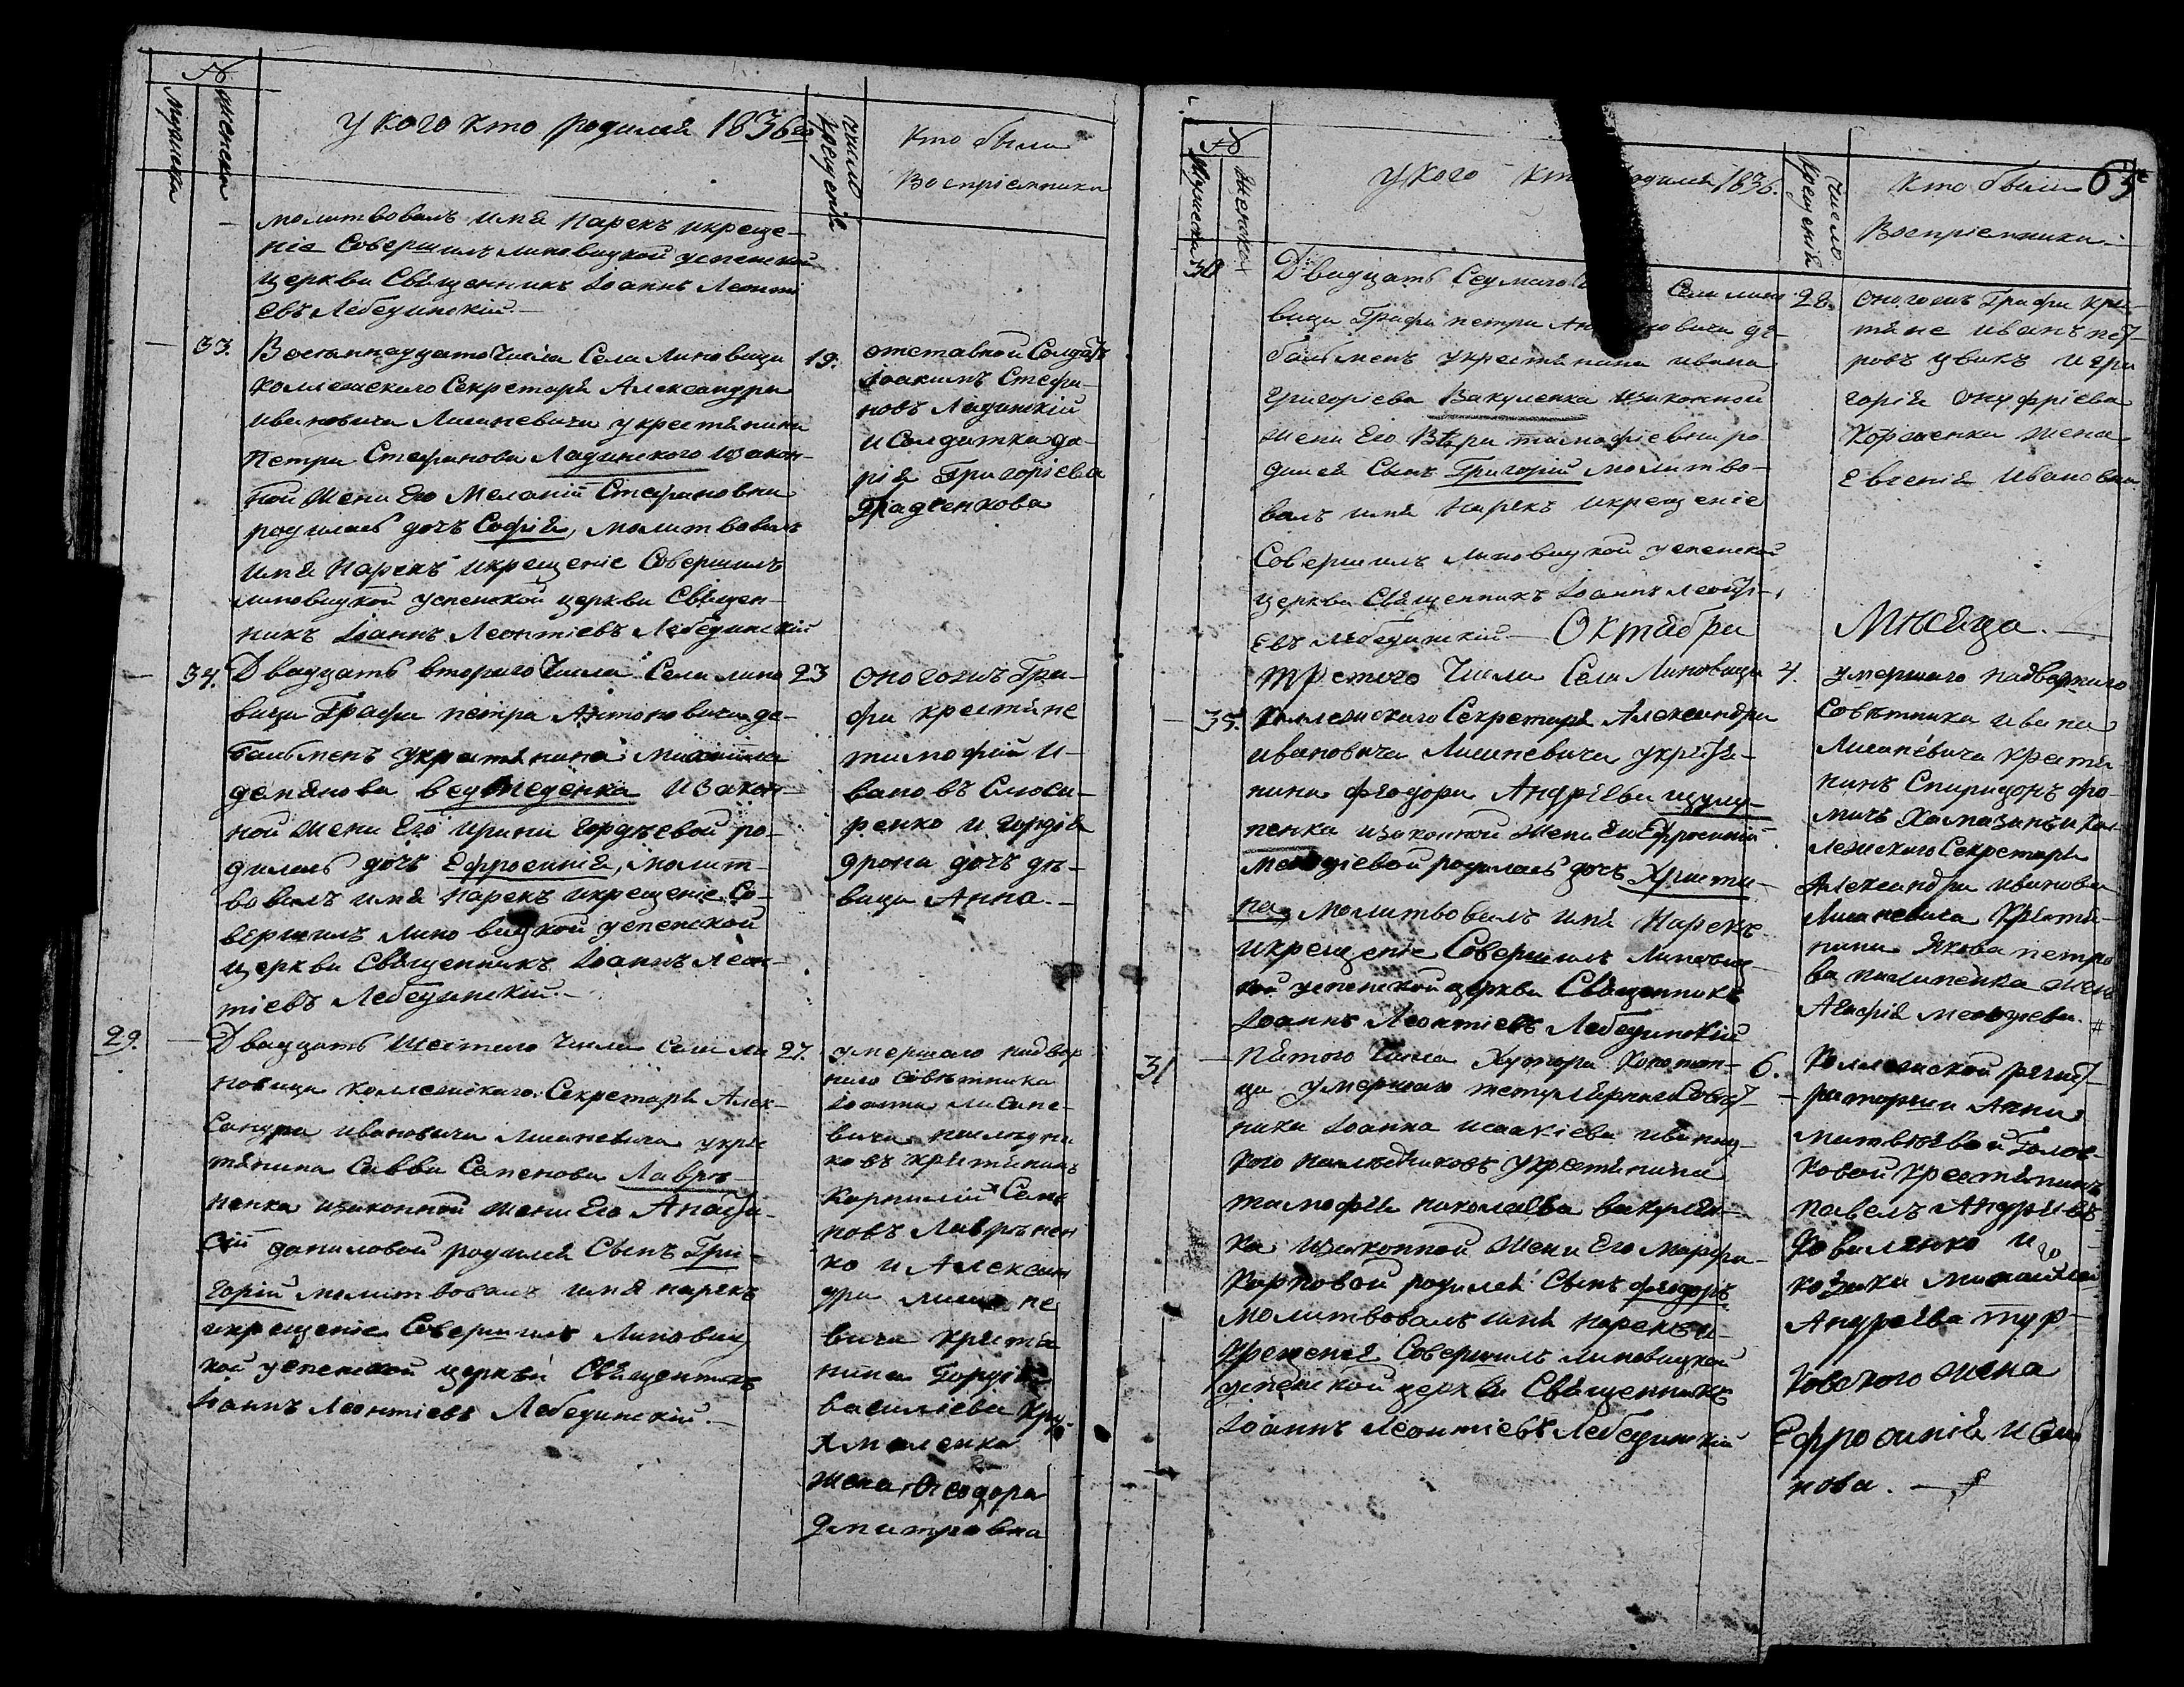 №
мужеска
женска
У кого кто родился 1836го
число крещенія
Кто были
Воспріемники
молитвовалъ имя нарекъ икреще-
ніе Совершилъ линовицкой успенской
церкви Священникъ Іоаннъ Леонті
евъ Лебединскій.-
33. Восемнадцатого Числа Села Линовици 19.
коллежского Секретаря Александра
ивановича Лисаневича укрестянина
Петра Стефанова Ладинского изакон-
ной жени Его Меланіи Стефановни
родилась дочь Софія, молитвовалъ
имя нарекъ икрещеніе Совершилъ
линовицкой успенской церкви Священ-
никъ Іоаннъ Леонтіевъ Лебединскій
отставной Солдатъ
Іоакимъ Стефа-
новъ Ладинскій
и Солдатка да-
рія Григоріева
34. Двадцать второго Числа Села лино 23
вици Графа петра Антоновича де-
балменъ укрестянина Михаила
демянова ведмеденка изакон-
ной жени Его ирини Гордѣевой ро-
дилась дочь Ефросинія, молит-
вовалъ имя нарекъ икрещеніе Со-
вершилъ линовицкой успенской
церкви Священникъ Іоаннъ Леон-
тіевъ Лебединскій.-
оногожъ Гра-
фа крестяне
тимофей и-
вановъ Слюса-
ренко и
дочь дѣ-
вица Анна.-
29. Двадцать Шестого Числа Села ли 27.
новици коллежского Секретаря Алек-
сандра ивановича Лисаневича укре
тянина Савви Семенова Лаврѣ-
ненка изаконной жени Его Анаста-
сіи даниловой родился Сынъ Гри-
горій молитвовалъ имя нарекъ
икрещеніе Совершилъ Линовиц
кой успенской церкви Священникъ
Іоаннъ Леонтіевъ Лебединскій.-
умершаго надвор
наго Совѣтника
Іоанна лисане-
вича наслѣдни
ковъ крѣстянинъ
Корнилій Семе
новъ Лаврѣнен
ко и Алексан
дра лисане
вича крестя
нина Гордія
василіева
жена Ѳеодора
дмитровна
№
Мужеска
женска
У кого кт одился 1836.
Число Крещенія
Кто были 63
Воспріемники
30 Двадцать Седмаго Села лино 28.
вици Графа петра Ан новича де
балменъ укрестянина ивана
Григоріева Вакуленка изаконной
жени Его Вѣри тимофіевни ро
дился Сынъ Григорій молитво-
валъ имя нарекъ икрещеніе
Совершилъ линовицкой успенской
церкви Священникъ Іоаннъ леонті-
евъ лебединскій - Октября
оногожъ Графа кре-
тяне иванъ пет-
ровъ цвикъ и гри
горія онуфріева
жена
Евгенія ивановна
Мѣсяца.-
35. Третого Числа Села Линовици 4.
Коллежского Секретаря Александра
ивановича Лисаневича укрестя-
нина Феодора Андрѣева
пенка изаконной жени Его Ефросиніи
родилась дочь Христи-
на, Молитвовалъ имя Нарекъ
икрещеніе Совершилъ Линовиц-
кой успенской церкви Священникъ
Іоаннъ Леонтіевъ Лебединскій
умершаго надворнаго
Совѣтника ивана
Лисаневича крестя
нинъ Спиридонъ фо-
мичъ и кол-
лежского Секретаря
Александра иванова
Лисаневича крестя-
нина Якова петро
ва жена
Агафія
31 Пятого Числа Хутора 6.
ци умершаго титулярнаго Совѣт-
ника Іоанна исаакіева иваниц-
кого наслѣдниковъ укрестянина
тимофѣя николаева вакулен-
ка изаконной жени Его Марфи
Карповой родился Сынъ феодоръ
молитвовалъ имя нарекъ и-
крещенія Совершилъ линовицкой
успенской церкви Священникъ
Іоаннъ Леонтіевъ Лебединскій
Коллежской регист-
раторши Анни
матвѣевой
крестянинъ
павелъ Андрѣевъ
Коваленко и
козака михаила
Андреева тур-
ковского жена
Ефросинія
нова. -